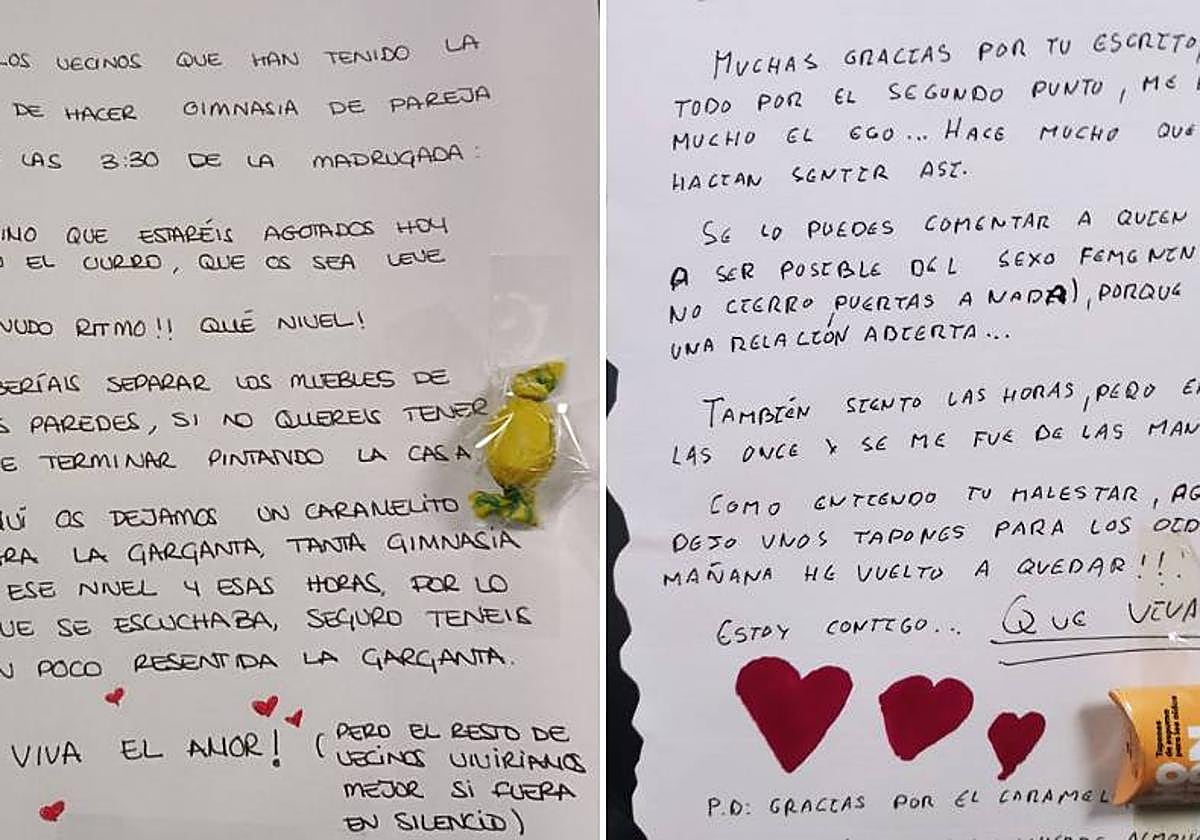 LOS VECINOS QUE HAN TENIDO LA
DE HACER GIMNASIA DE PAREJA
LAS 3:30 DE LA MADRUGADA:
QUE ESTARÉIS AGOTADOS HOY
EL CURRO, QUE OS SEA LEVE
RITMO!! QUÉ NIVEL!
SEPARAR LOS MUEBLES DE
PAREDES, SI NO QUEREIS TENER
E TERMINAR PINTANDO LA CASA
OS DEJAMOS UN CARAMELITO
LA GARGANTA, TANTA GIMNASIA
ESE NIVEL Y ESAS HORAS, POR LO
UE SE ESCUCHABA, SEGURO TENEIS
POCO RESENTIDA LA GARGANTA.
VIVA EL AMOR! (PERO EL RESTO DE
VECINOS VIVIRIAMOS
MEJOR SI FUERA
EN SILENCIO)
MUCHAS GRACIAS POR TU ESCRITO,
TODO POR EL SEGUNDO PUNTO, ME
MUCHO EL EGO... HACE MUCHO QUE
HACIAN SENTIR ASI.
SE LO PUEDES COMENTAR A QUIEN
A SER POSIBLE DEL SEXO FEMENIN
NO CIERRO PUERTAS A NADA), PORQUE
UNA RELACIÓN ABIERTA...
TAMBIÉN SIENTO LAS HORAS, PERO
LAS ONCE Y SE ME FUE DE LAS MAN
COMO ENTIENDO TU MALESTAR,
DEJO UNOS TAPONES PARA LOS OID
MAÑANA HE VUELTO A QUEDAR!!!
ESTOY CONTIGO... QUE VIVA
Tapones
de espuma
para los oídos
P.D: GRACIAS POR EL CARAMEL